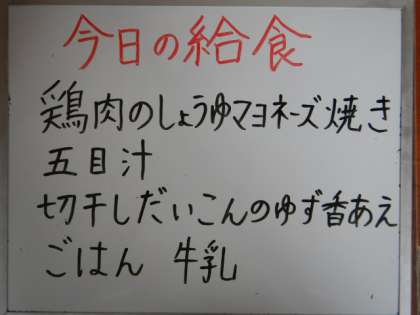 今日の給食
鶏肉のしょうゆマヨネーズ焼き
五目汁
切干しだいこんのゆず香あえ
ごはん 牛乳